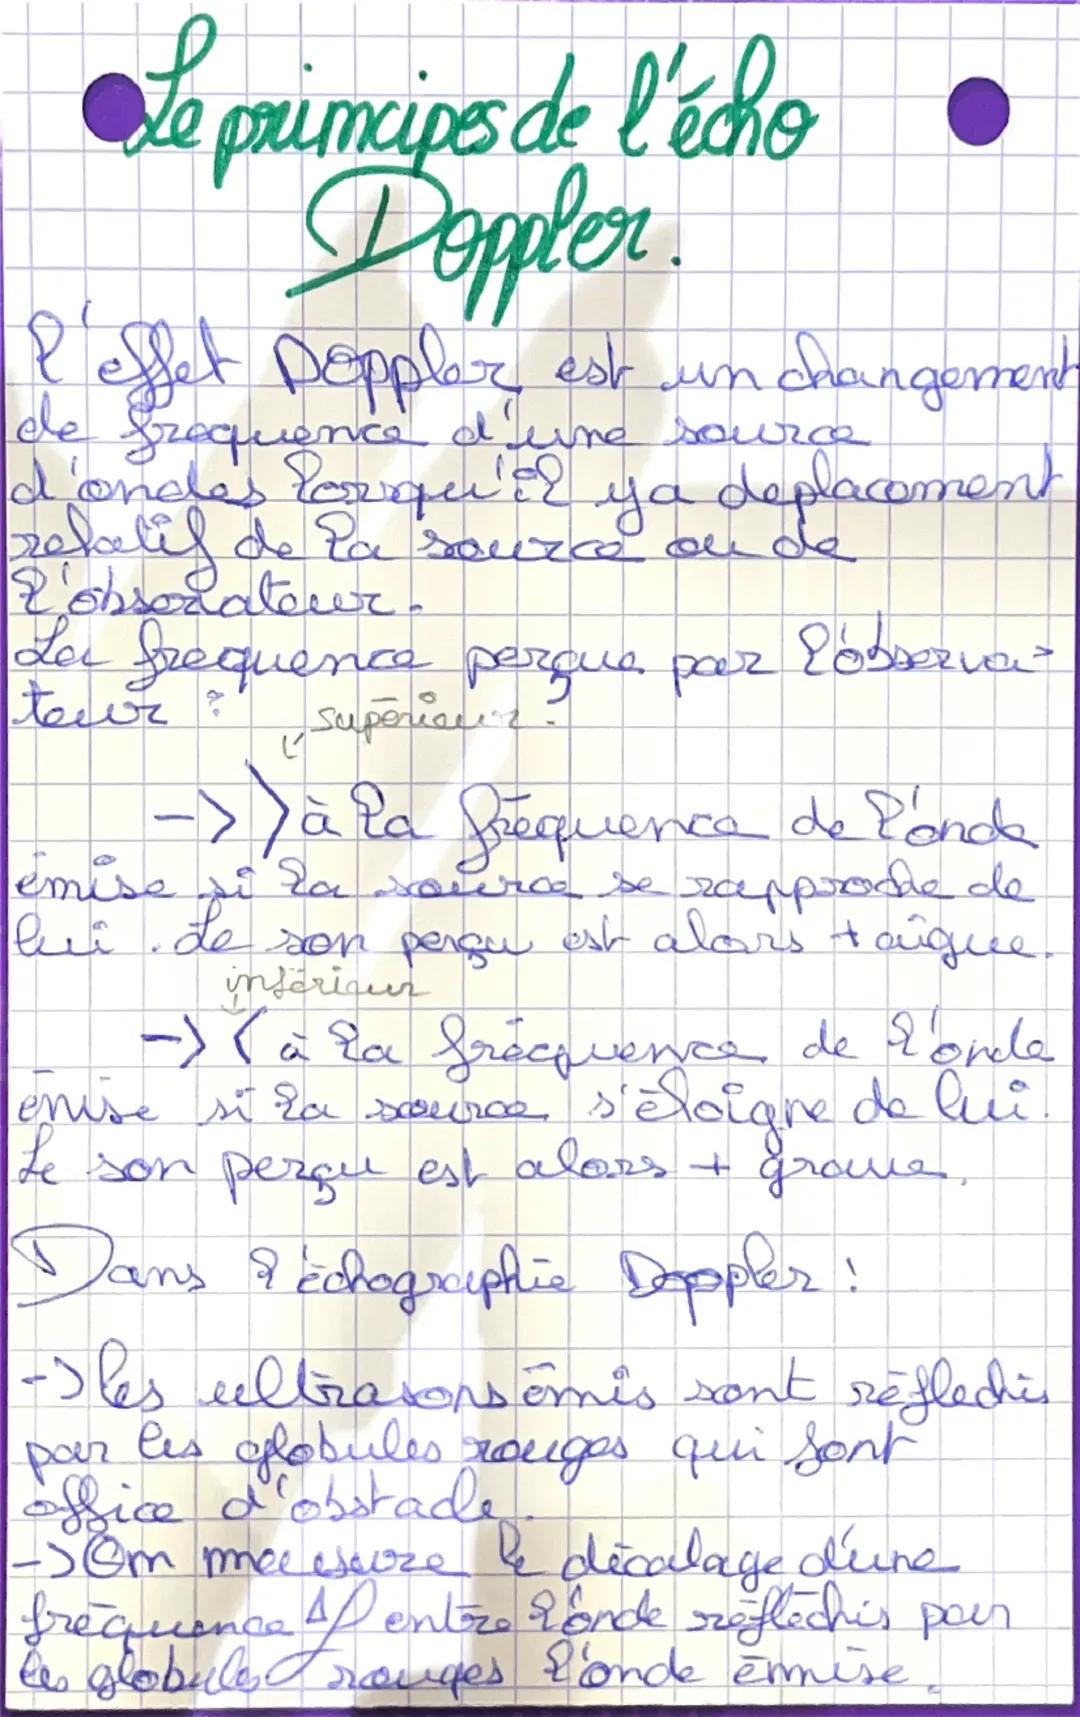 Le principes de l'écho
Doppler.
L'effet Doppler est un changement
de frequence d'une source
d'ondes lorsqu'il y a deplacement
relatif de la source ou de
l'observateur.
La frequence perçue par l'observa-
teur :
supérieur.
-> > à la fréquence de l'onde
émise si la source se rapproche de
lui. Le son perçu est alors + aigue.
inférieur
-> < à la fréequence de l'onde
émise si la source s'éloigne de lui.
Le son perçu est alors + grave.
Dans l'échographie Doppler :
-> les ultrasons émis sont réflechis
par les globules rouges qui font
office d'obstacle.
-> On meusure le décalage d'une
fréquence Δf entre l'onde réflechis par
les globules rouges l'onde émise.